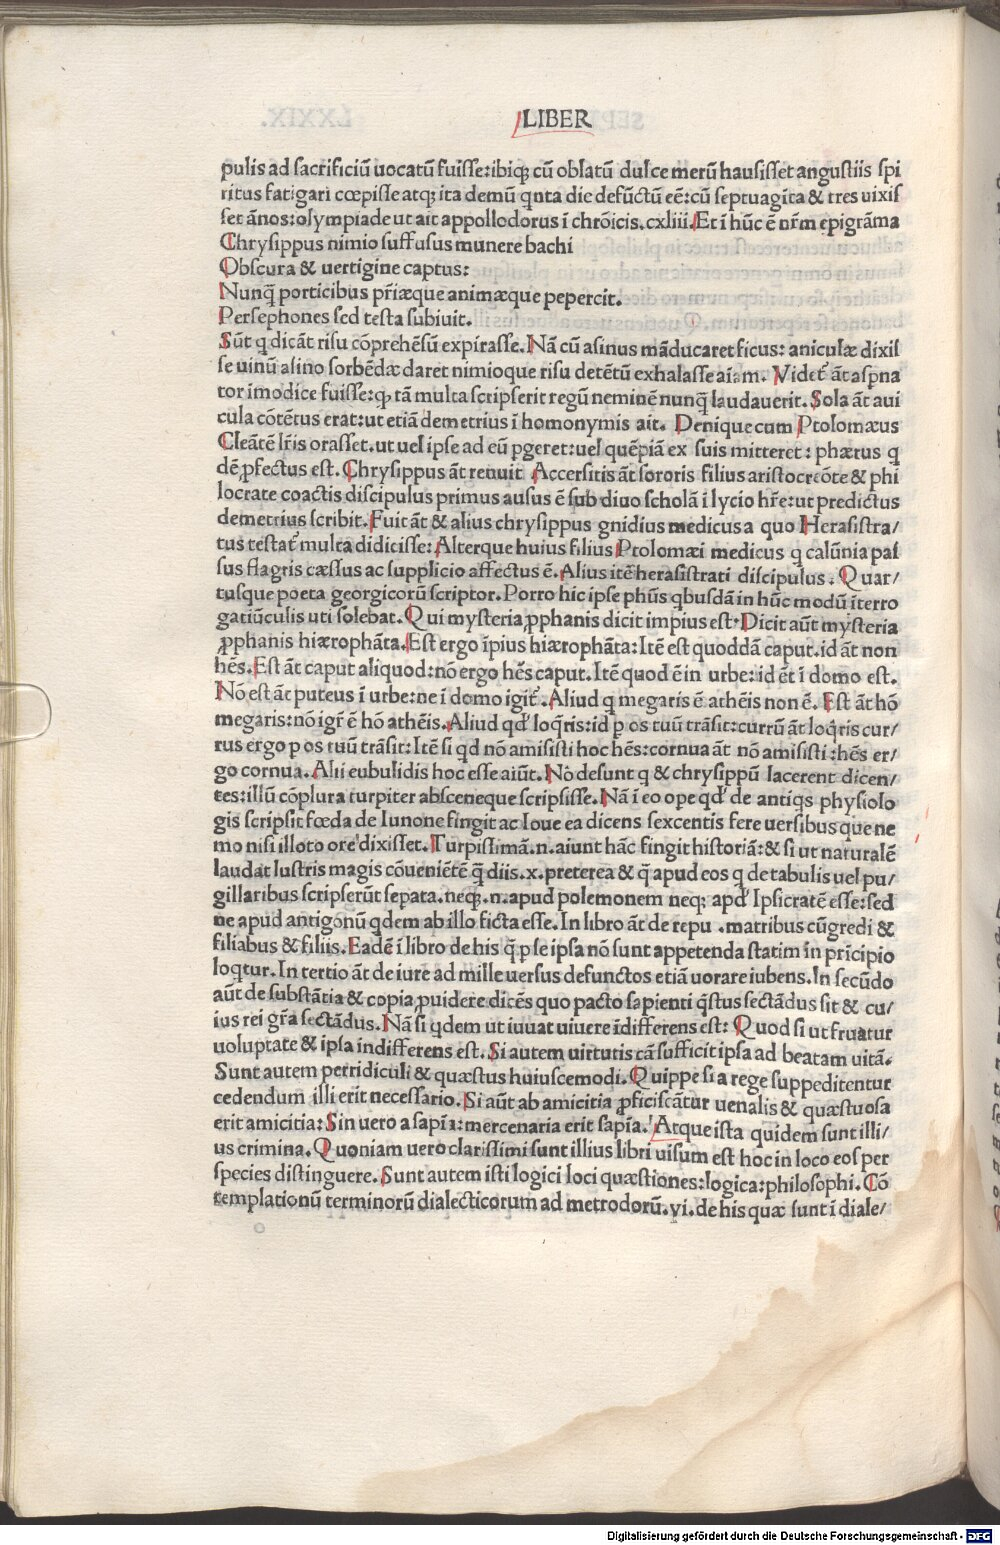 LIBER
pulis ad sacrificiū uocatū fuisse: ibiq; cū oblatū dulce merū hausisset angustiis spi
ritus fatigari cœpisse atq; ita demū qnta die defūctū eē: cū septuagīta & tres uixis
set ānos: olympiade ut ait appollodorus ī chrōicis. cxliii. Et ī hūc ē nr̄m epigrāma
Chrysippus nimio suffusus munere bachi
Obscura & uertigine captus:
Nunq̄ porticibus pr̄iæque animæque pepercit.
Persephones sed testa subiuit.
Sūt q dicāt risu cōprehēsū expirasse. Nā cū asinus māducaret ficus: aniculæ dixis
se uinū asino sorbēdæ daret nimioque risu detētū exhalasse aīam. Videt̄ āt aspna
tor īmodice fuisse: q; tā multa scripserit regū neminē nunq̄ laudauerit. Sola āt aui
cula cōtētus erat: ut etiā demetrius ī homonymis ait. Denique cum Ptolomæus
Cleātē lr̄is orasset. ut uel ipse ad eū pgeret: uel quēpiā ex suis mitteret: phærus q
dē ꝓfectus est. Chrysippus āt renuit Accersitis āt sororis filius aristocreōte & phi
locrate coactis discipulus primus ausus ē sub diuo scholā ī lycio hr̄e: ut predictus
demetrius scribit. Fuit āt & alius chrysippus gnidius medicus a quo Herasistra/
tus testat̄ multa didicisse: Alterque huius filius Ptolomæi medicus q calūnia pas
sus flagris cæsus ac supplicio affectus ē. Alius itē herasistrati discipulus. Quar/
tusque poeta georgicorū scriptor. Porro hic ipse phūs qbusdā in hūc modū īterro
gatiūculis uti solebat. Qui mysteria ꝓphanis dicit impius est. Dicit aūt mysteria
ꝓphanis hiærophāta. Est ergo īpius hiærophāta: Itē est quoddā caput. id āt non
hēs. Est āt caput aliquod: nō ergo hēs caput. Itē quod ē in urbe: id ēt ī domo est.
Nō est āt puteus ī urbe: ne ī domo igit̄. Aliud q megaris ē athēis non ē. Est āt hō
megaris: nō igr̄ ē hō athēis. Aliud qd̄ loqr̄is: id p os tuū trāsit: currū āt loqr̄is cur/
rus ergo p os tuū trāsit: Itē si qd nō amisisti hoc hēs: cornua āt nō amisisti: hēs er/
go cornua. Alii eubulidis hoc esse aiūt. Nō desunt q & chrysippū lacerent dicen/
tes: illū cōplura turpiter absceneque scripsisse. Nā ī eo ope qd̄ de antiqs physiolo
gis scripsit fœda de Iunone fingit ac Ioue ea dicens sexcentis fere uersibus que ne
mo nisi illoto ore dixisset. Turpissimā. n. aiunt hāc fingit historiā: & si ut naturalē
laudat lustris magis cōueniētē q̄ diis. x. preterea & q̄ apud eos q de tabulis uel pu/
gillaribus scripserūt sepata. neq;. n. apud polemonem neq; apd̄ Ipsicratē esse: sed
ne apud antigonū qdem ab illo ficta esse. In libro āt de repu. matribus cūgredi &
filiabus & filiis. Eadē ī libro de his q̄ p se ipsa nō sunt appetenda statim in pr̄icipio
loqtur. In tertio āt de iure ad mille uersus defunctos etiā uorare iubens. In secūdo
aūt de substātia & copia ꝓuidere dicēs quo pacto sapienti qs̄tus sectādus sit & cu/
ius rei gr̄a sectādus. Nā si qdem ut iuuat uiuere īdifferens est: Quod si ut fruatur
uoluptate & ipsa indifferens est. Si autem uirtutis cā sufficit ipsa ad beatam uitā.
Sunt autem perridiculi & quæstus huiuscemodi. Quippe si a rege suppeditentur
cedendum illi erit necessario. Si aūt ab amicitia ꝓficiscātur uenalis & quæstuosa
erit amicitia: Sin uero a sapīa: mercenaria erit sapīa. Atque ista quidem sunt illi/
us crimina. Quoniam uero clarissimi sunt illius libri uisum est hoc in loco eos per
species distinguere. Sunt autem isti logici loci quæstiones: logica: philosophi. Cō
templationū terminorū dialecticorum ad metrodorū. yi. de his quæ sunt ī diale/
Digitalisierung gefördert durch die Deutsche Forschungsgemeinschaft - DFG